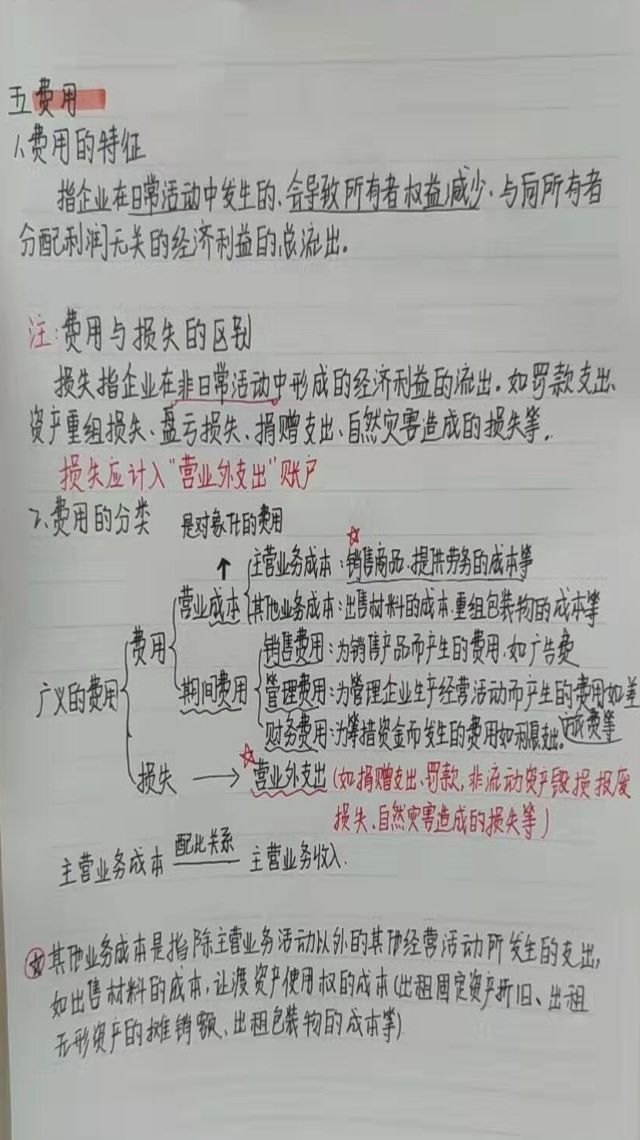 五费用
1.费用的特征
指企业在日常活动中发生的、会导致所有者权益减少、与向所有者
分配利润无关的经济利益的总流出.
注:费用与损失的区别
损失指企业在非日常活动中形成的经济利益的流出.如罚款支出、
资产重组损失、盘亏损失、捐赠支出、自然灾害造成的损失等.
损失应计入"营业外支出"账户
2.费用的分类
是对象化的费用
主营业务成本:销售商品、提供劳务的成本等
营业成本
其他业务成本:出售材料的成本、重组包装物的成本等
费用
销售费用:为销售产品而产生的费用.如广告费
广义的费用
期间费用
管理费用:为管理企业生产经营活动而产生的费用如差
旅费等
财务费用:为筹措资金而发生的费用如利息支出.
损失 → 营业外支出(如捐赠支出、罚款,非流动资产毁损报废
损失、自然灾害造成的损失等)
主营业务成本 配比关系 主营业务收入.
其他业务成本是指除主营业务活动以外的其他经营活动所发生的支出,
如出售材料的成本,让渡资产使用权的成本(出租固定资产折旧、出租
无形资产的摊销额、出租包装物的成本等)